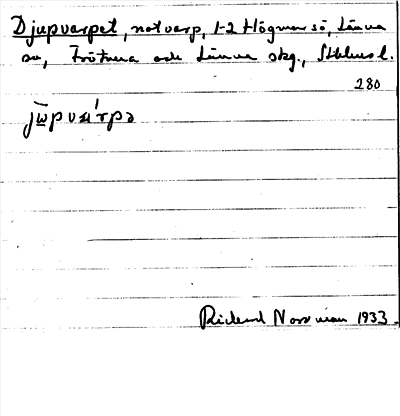 Djupvarpet, notvarp, 1-2 Högmarsö, Länna
sn, Frötuna och Länna skg., Sthlms l.
280
jẁpvárpə
Rickard Norrman 1933.